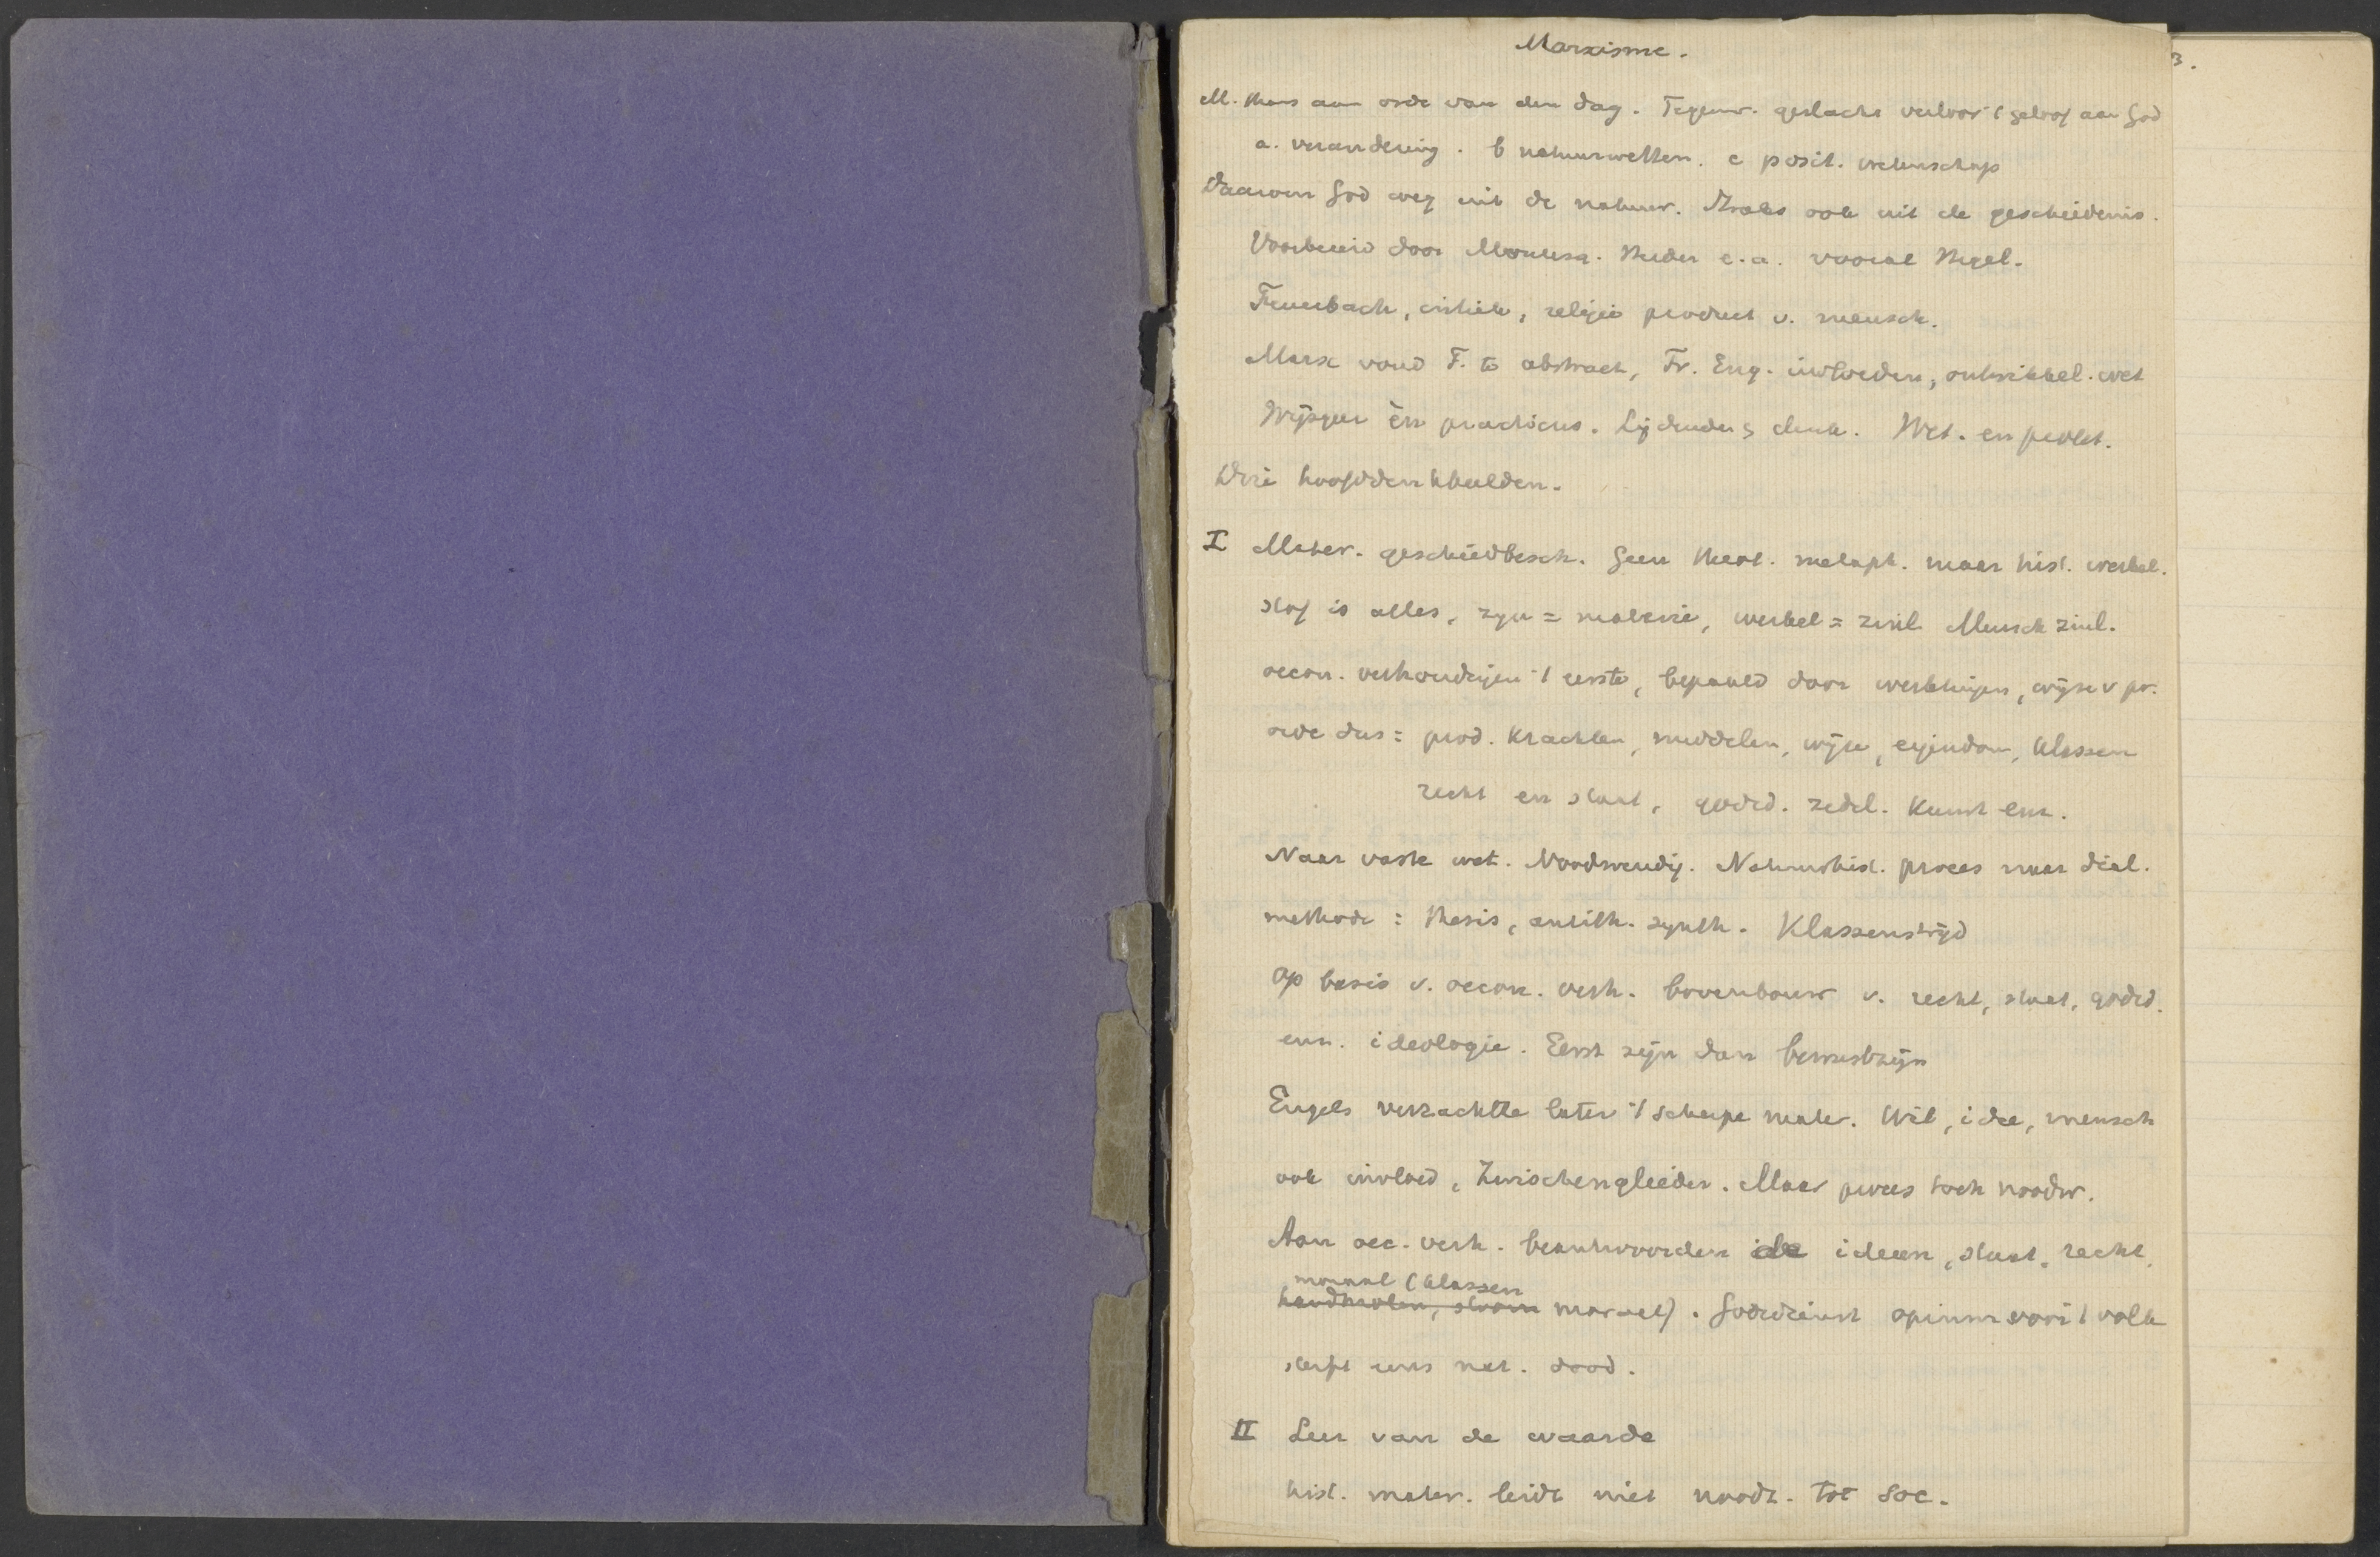 Marxisme.
M. thans aan orde van den dag. Tegenw. geslacht verloor 't geloof aan God
a. verandering. b natuurwetten. c posit. wetenschap
Daarom God weg uit de natuur. Straks ook uit de geschiedenis.
Voorbereid door Montesq. Herder e.a. vooral Hegel.
Feuerbach, critiek, religie product v. mensch.
Marx vond F. te abstract, Fr. Eng. invloeden, ontwikkel. wet
Wijsgeer èn practicus. Lijdende & denk. Wet. en prolet.
Drie hoofddenkbeelden.
I Mater. geschiedbesch. Geen theol. metaph. maar hist. werkel.
stof is alles, zijn = materie, werkel = zinl. Mensch zinl.
oecon. verhoudingen 't eerste, bepaald door werktuigen, wijze v pr.
orde dus: prod. krachten, middelen, wijze, eigendom, klassen
recht en staat, godsd. zedel. kunst enz.
Naar vaste wet. Noodwendig. Natuurhist. proces naar dial.
methode: thesis, antith. synth. Klassenstrijd
op basis v. oecon. verh. bovenbouw v. recht, staat, godsd.
enz. ideologie. Eerst zijn dan bewustzijn
Engels verzachtte later 't scherpe mater. Wil, idee, mensch
ook invloed, Zwischenglieder. Maar proces toch noodw.
Aan oec. verh. beantwoorden de ideeen, staat, recht,
moraal (klassen
handmolen, stoom moraal). Godsdienst opium voor 't volk
sterft eens nat. dood.
II Leer van de waarde
hist. mater. leidt niet noodz. tot soc.
3.